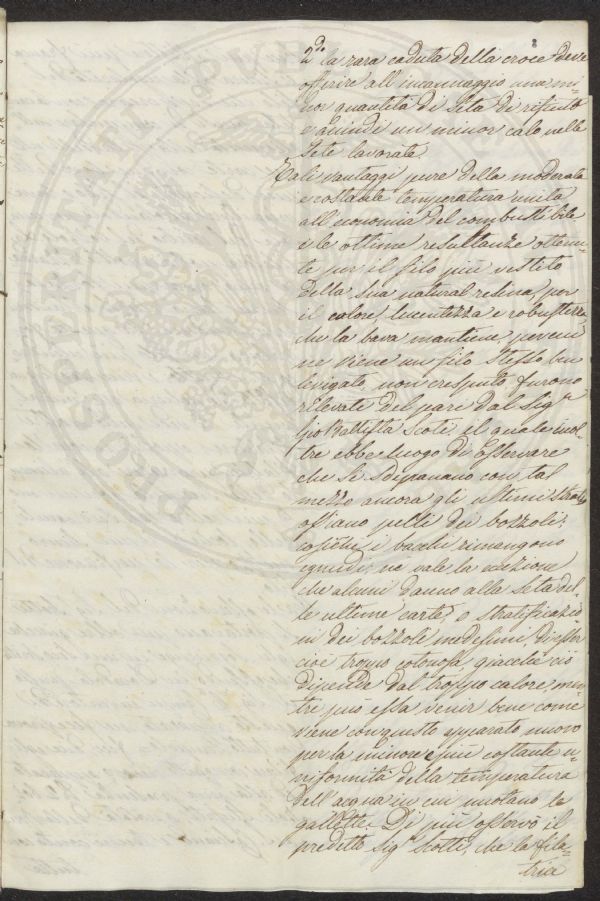 2.do la rara caduta della croce deve
offrire all'incannaggio una mi-
nor quantità di seta di rifiuto
e quindi un minor calo nelle
sete lavorate.
Tali vantaggi pure della moderata
e costante temperatura unita
all'economia del combustibile
e le ottime resultanze ottenu-
te per il filo più vestito
della sua natural resina, per
il calore, lucentezza e robustezza
che la bava mantiene, perciò
ne viene un filo stesso ben
levigato, non cresputo furono
rilevate del pari dal Sig.r
Gio Battista Scoti il quale inol-
tre ebbe luogo di osservare
che si sdipanano con tal
mezzo ancora gli ultimi strati,
ossiano pelli dei bozzoli;
cosichè i bacelli rimangono
ignudi, ne vale la eccezione
che alcuni danno alla seta del-
le ultime carte, o stratificazio
ni dei bozzoli medesimi, di esser
cioè troppo cotonosa giacchè ciò
dipende dal troppo calore, men-
tre può essa venir bene come
viene con questo apparato nuovo
per la minore e più costante u-
niformità della temperatura
dell'acqua in cui nuotano le
gallette. Di più osservò il
predetto Sig.r Scotti, che la fila-
trice
PROSPERITATI PUB